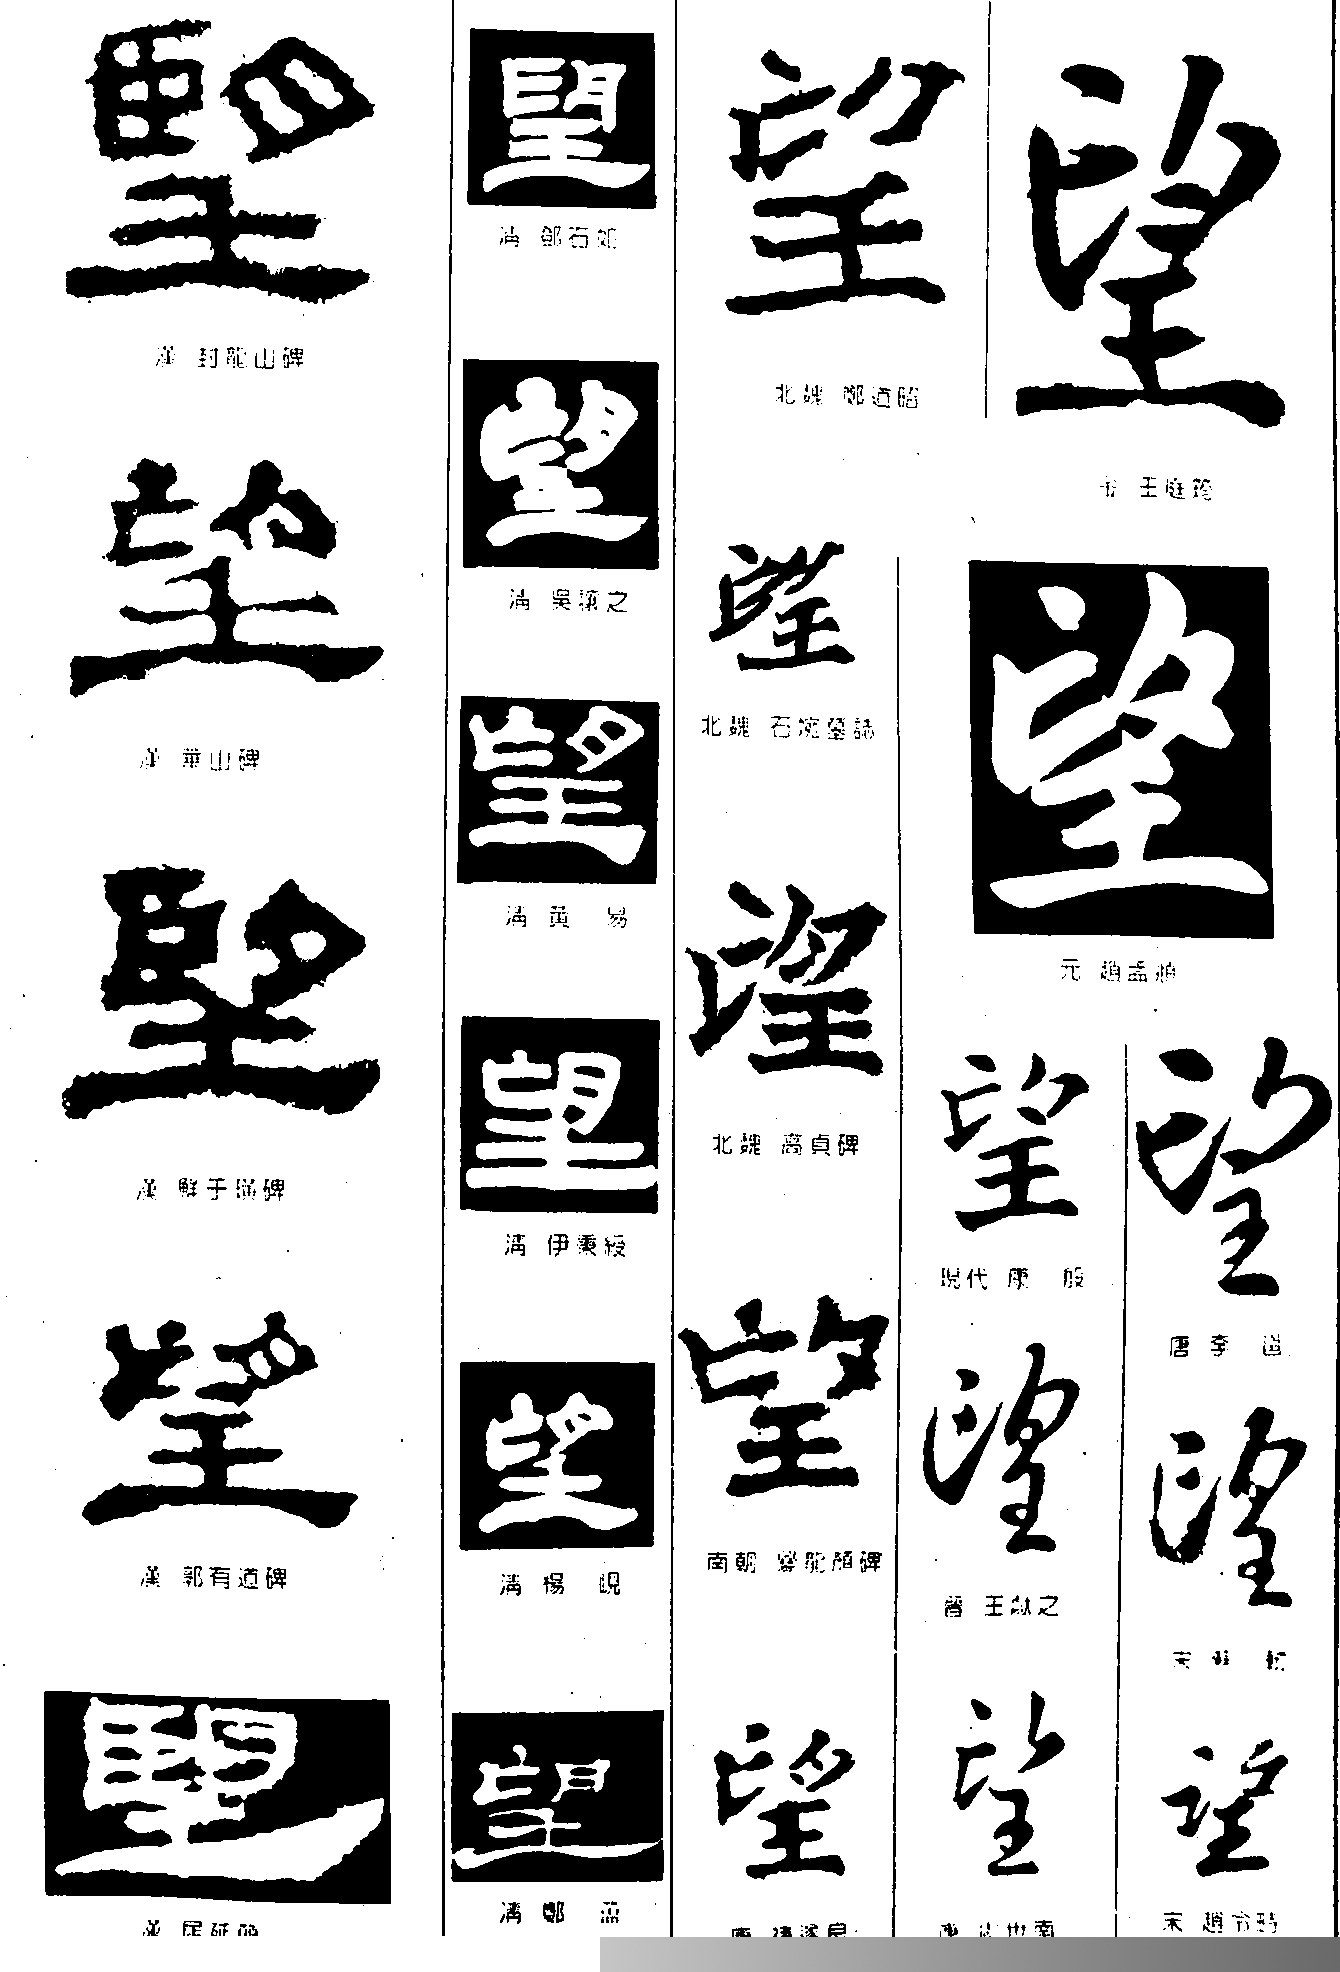 望
漢 封龍山碑
望
漢 華山碑
望
漢 鮮于璜碑
望
漢 郭有道碑
望
漢 居延簡
望
清 鄧石如
望
清 吳讓之
望
清 黃 易
望
清 伊秉綬
望
清 楊 峴
望
清 鄭 簠
望
北魏 鄭道昭
望
北魏 石婉墓誌
望
北魏 高貞碑
望
南朝 爨龍顏碑
望
唐 褚遂良
望
金 王庭筠
望
元 趙孟頫
望
現代 康 殷
望
晉 王獻之
望
唐 虞世南
望
唐 李 邕
望
宋 蘇 軾
望
宋 趙令畤